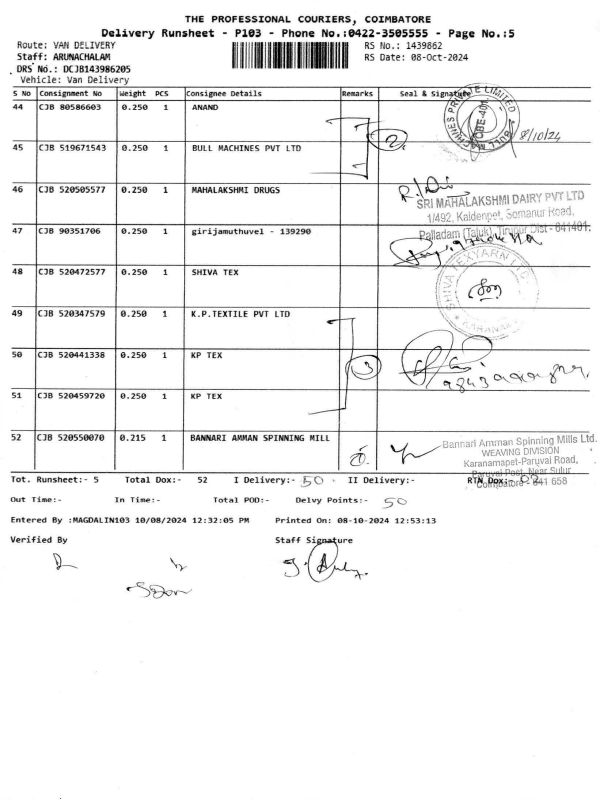 THE PROFESSIONAL COURIERS, COIMBATORE
Delivery Runsheet - P103 - Phone No.:0422-3505555 - Page No.:5
Route: VAN DELIVERY RS No.: 1439862
Staff: ARUNACHALAM RS Date: 08-Oct-2024
DRS No.: DCJB143986205
Vehicle: Van Delivery
S No Consignment No Weight PCS Consignee Details Remarks Seal & Signature
44 CJB 80586603 0.250 1 ANAND
8/10/24
45 CJB 519671543 0.250 1 BULL MACHINES PVT LTD
2
46 CJB 520505577 0.250 1 MAHALAKSHMI DRUGS
SRI MAHALAKSHMI DAIRY PVT LTD
1/492, Kaldenpet, Somanur Road,
Palladam (Taluk), Tirupur Dist - 641401.
47 CJB 90351706 0.250 1 girijamuthuvel - 139290
48 CJB 520472577 0.250 1 SHIVA TEX
SHIVA TEXYARN LTD.
49 CJB 520347579 0.250 1 K.P.TEXTILE PVT LTD
50 CJB 520441338 0.250 1 KP TEX
3
51 CJB 520459720 0.250 1 KP TEX
52 CJB 520550070 0.215 1 BANNARI AMMAN SPINNING MILL
Bannari Amman Spinning Mills Ltd.
WEAVING DIVISION
Karanamapet-Paruvai Road,
Paruvai Post, Near Sulur
Coimbatore - 641 658
Tot. Runsheet:- 5 Total Dox:- 52 I Delivery:- 50 II Delivery:- RTN Dox:- 02
Out Time:- In Time:- Total POD:- Delvy Points:- 50
Entered By :MAGDALIN103 10/08/2024 12:32:05 PM Printed On: 08-10-2024 12:53:13
Verified By Staff Signature